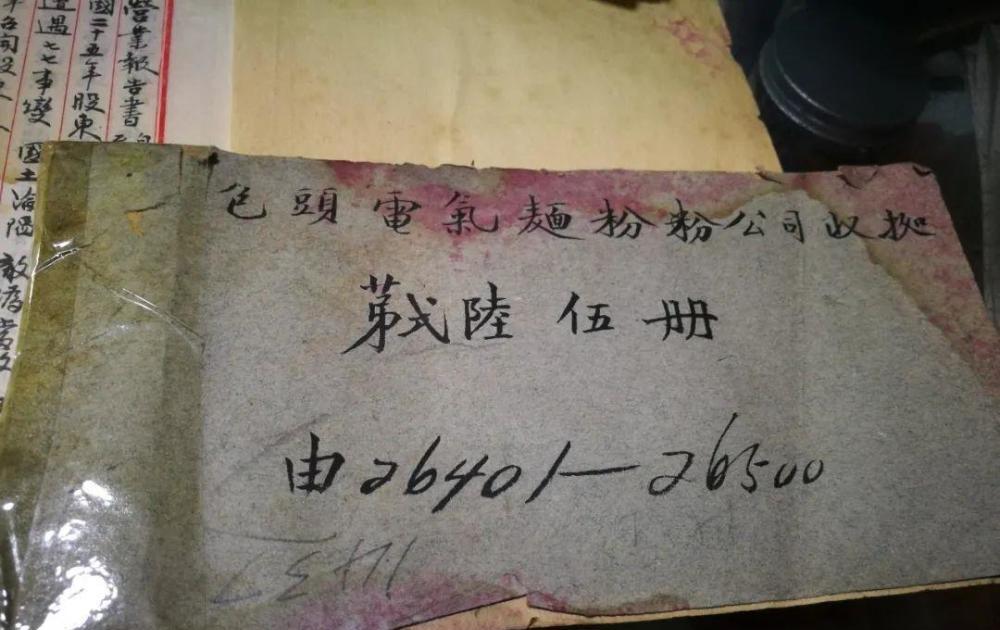 營業報告書
國二十五年股東
遭遇七七事變 國土淪陷 敵僞
包頭電氣麵粉粉公司收拠
第弍陸伍册
由26401—26500